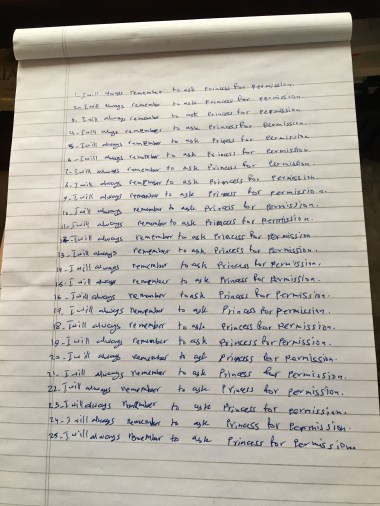 1. I will always remember to ask Princess for permission.
2. I will always remember to ask Princess for permission
3. I will always remember to ask Princess for permission
4. I will always remember to ask Princess for permission.
5. I will always remember to ask Princess for permission
6. I will always remember to ask Princess for permission
7. I will always remember to ask Princess for permission
8. I will always remember to ask Princess for permission.
9. I will always remember to ask Princess for permission.
10. I will always remember to ask Princess for permission.
11. I will always remember to ask Princess for permission.
12. I will always remember to ask Princess for permission
13. I will always remember to ask Princess for permission.
14. I will always remember to ask Princess for permission.
15. I will always remember to ask Princess for permission.
16. I will always remember to ask Princess for permission.
17. I will always remember to ask Princess for permission.
18. I will always remember to ask Princess for permission.
19. I will always remember to ask Princess for permission.
20. I will always remember to ask Princess for permission.
21. I will always remember to ask Princess for permission.
22. I will always remember to ask Princess for permission.
23. I will always remember to ask Princess for permission.
24. I will always remember to ask Princess for permission.
25. I will always remember to ask Princess for permission.